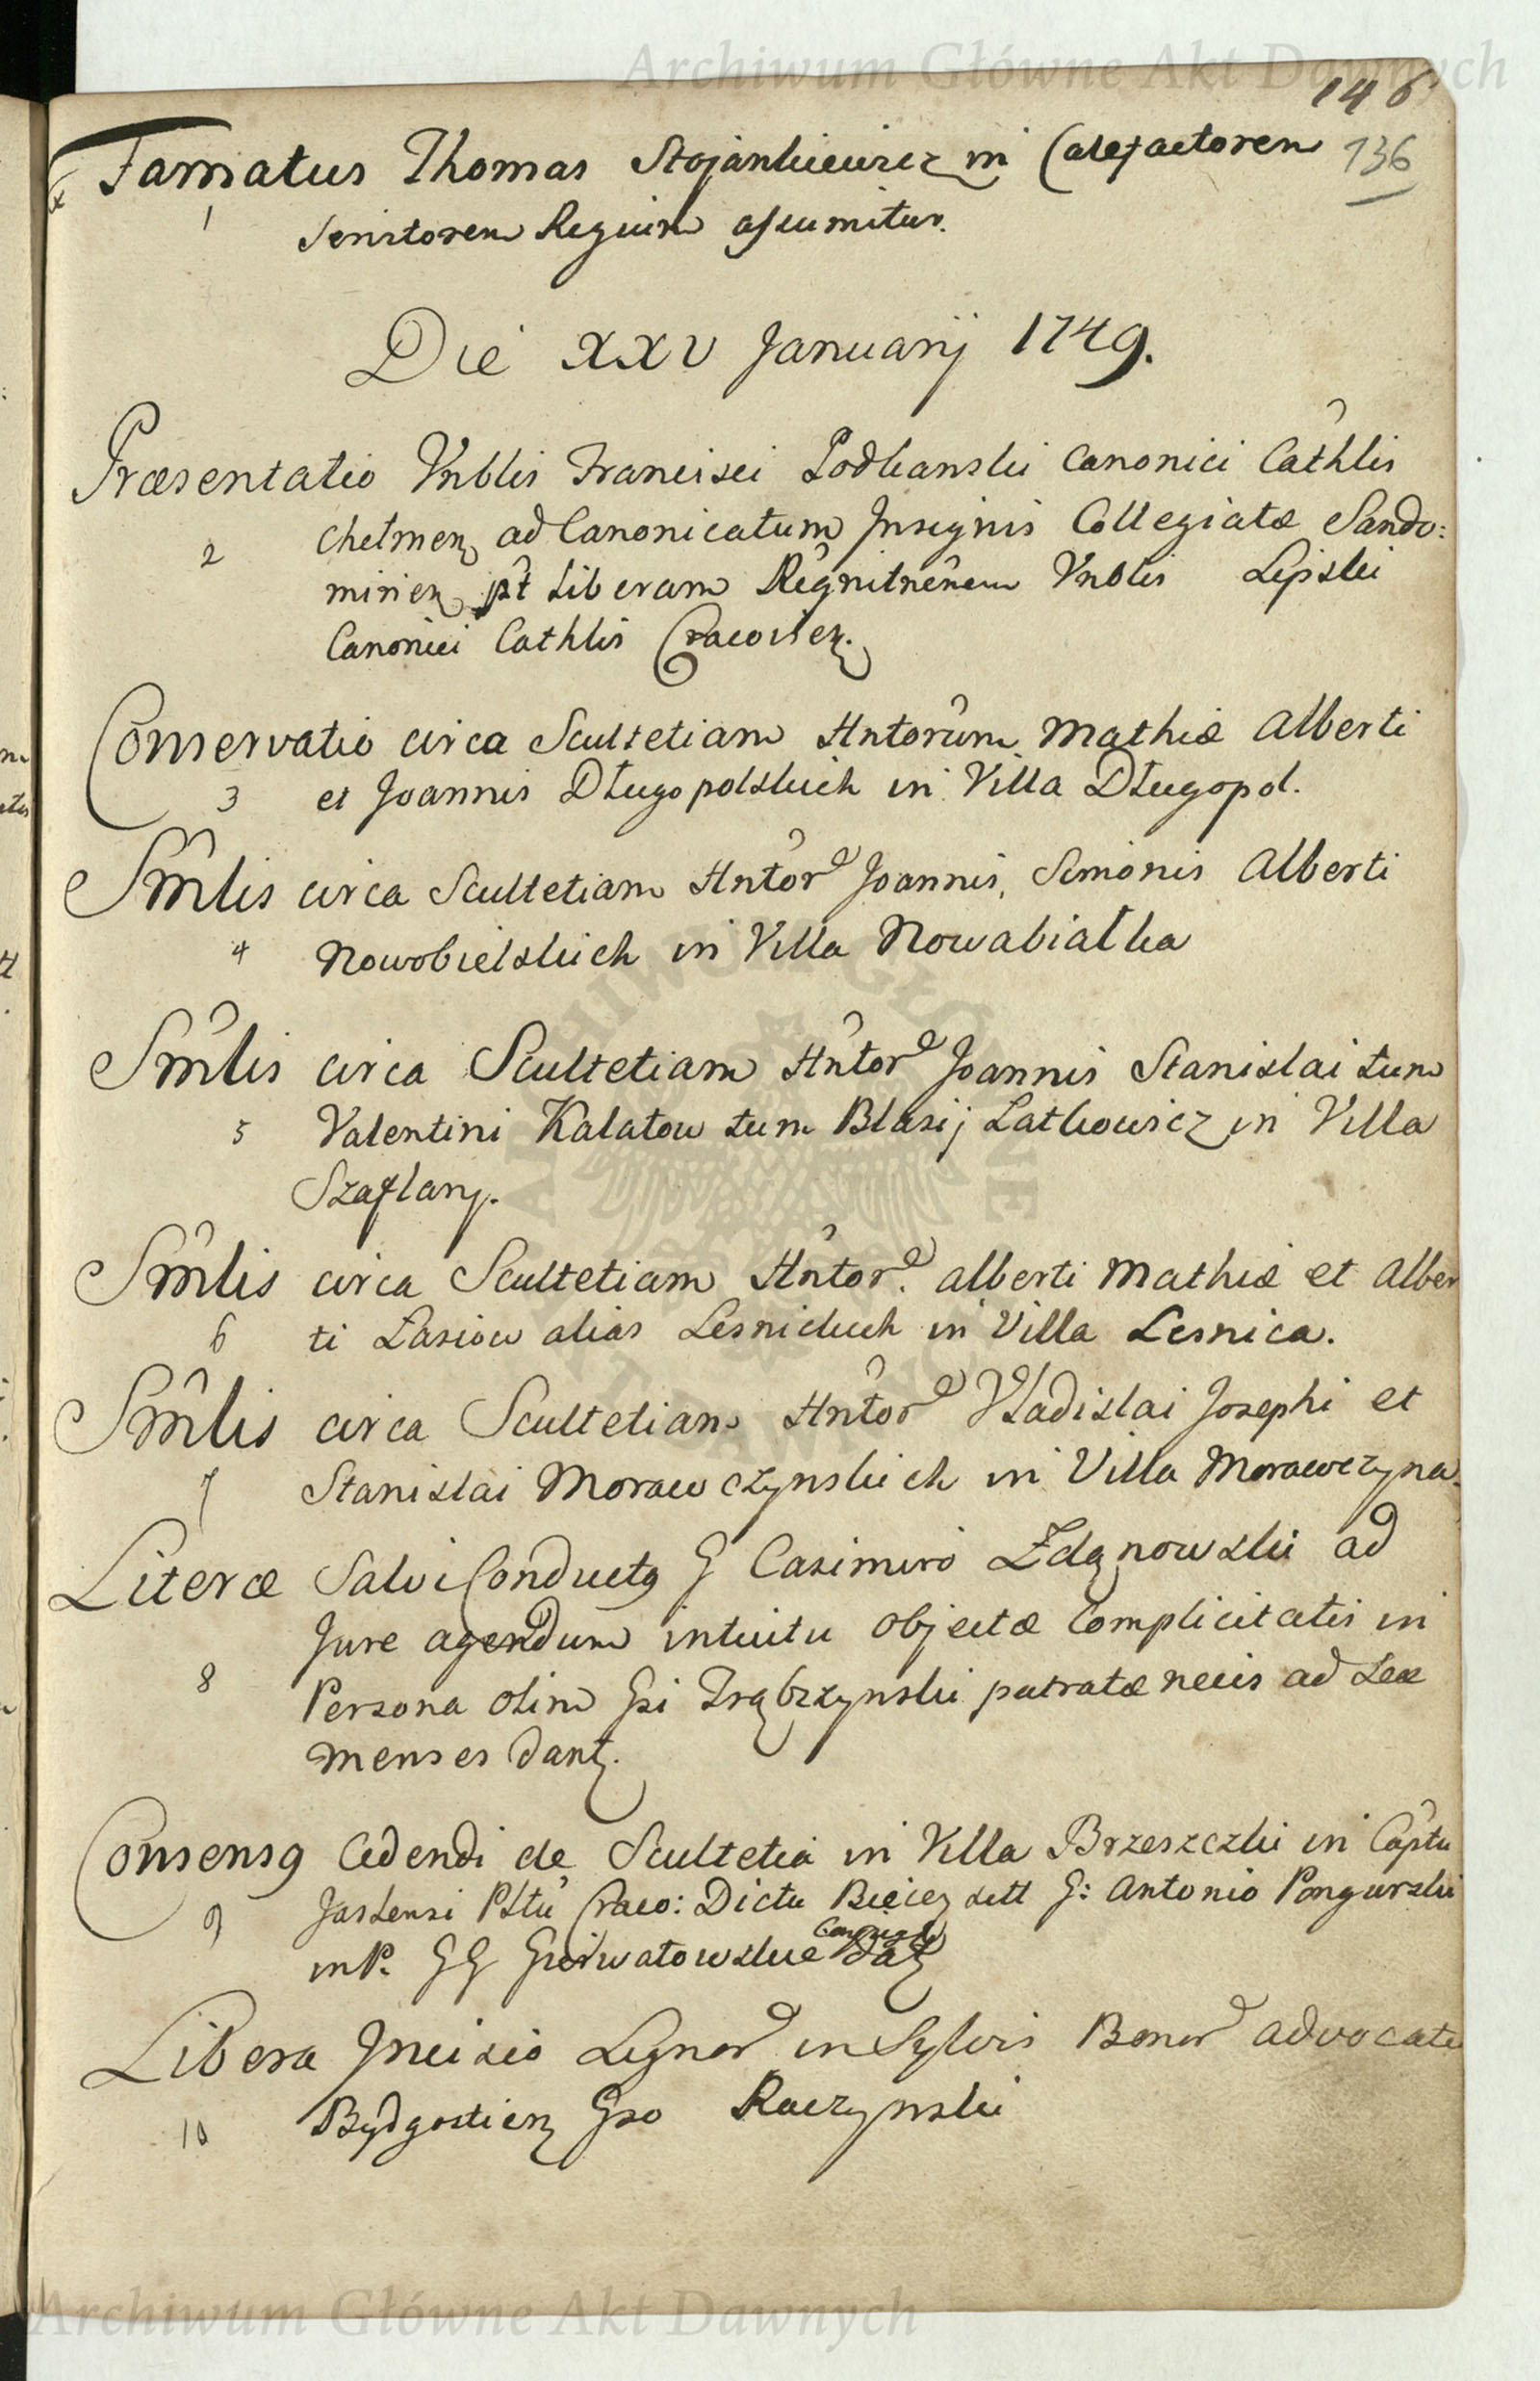 Archiwum Główne Akt Dawnych
146
136
Famatus Thomas Stojankiewicz in Calefactorem
1 Servitorem Regium assumitur.
Die XXV Januarij 1749.
Præsentatio Vnblis Francisci Podkanski Canonici Cathlis
2 Chelmen ad Canonicatum Insignis Collegiatæ Sando:
mirien pt Liberam Regnitnenem Vnblis Lipski
Canonici Cathlis Cracovien.
Conservatio circa Scultetiam Hntorum Mathiæ Alberti
3 et Joannis Długopolskich in Villa Długopol.
Smlis circa Scultetiam Hntor Joannis, Simonis Alberti
4 Nowobielskich in Villa Nowabiałka
Smlis circa Scultetiam Hntor Joannis Stanislai tum
5 Valentini Kalatow tum Blasij Latkowicz in Villa
Szaflary.
Smlis circa Scultetiam Hntor. Alberti Mathiæ et Alber
6 ti Łasiow alias Lesnickich in Villa Lesnica.
Smlis circa Scultetiam Hntor Vladislai Josephi et
7 Stanislai Morawczynskich in Villa Morawczyna.
Literæ Salvi Conductq G Casimiro Zdznowski ad
Jure agendum intuitu objectæ Complicitatis in
8 Persona olim Gsi Trąbczynski patratæ necis ad Sex
menses dant.
Consensq Cedendi de Scultetia in Villa Brzeszczki in Captu
9 Jaslensi Pttu Craco: Dictu Biecez sett G: Antonio Pongurski
in P. GG Gurwatowskie Conjuges datt
Libera Incisio Lignor in Sylvis Bonor Advocatiæ
10 Bydgostien Gso Raczynski
Archiwum Główne Akt Dawnych